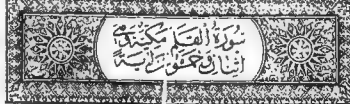 سورة القلم مكية وهي
اثنان وخمسون اية